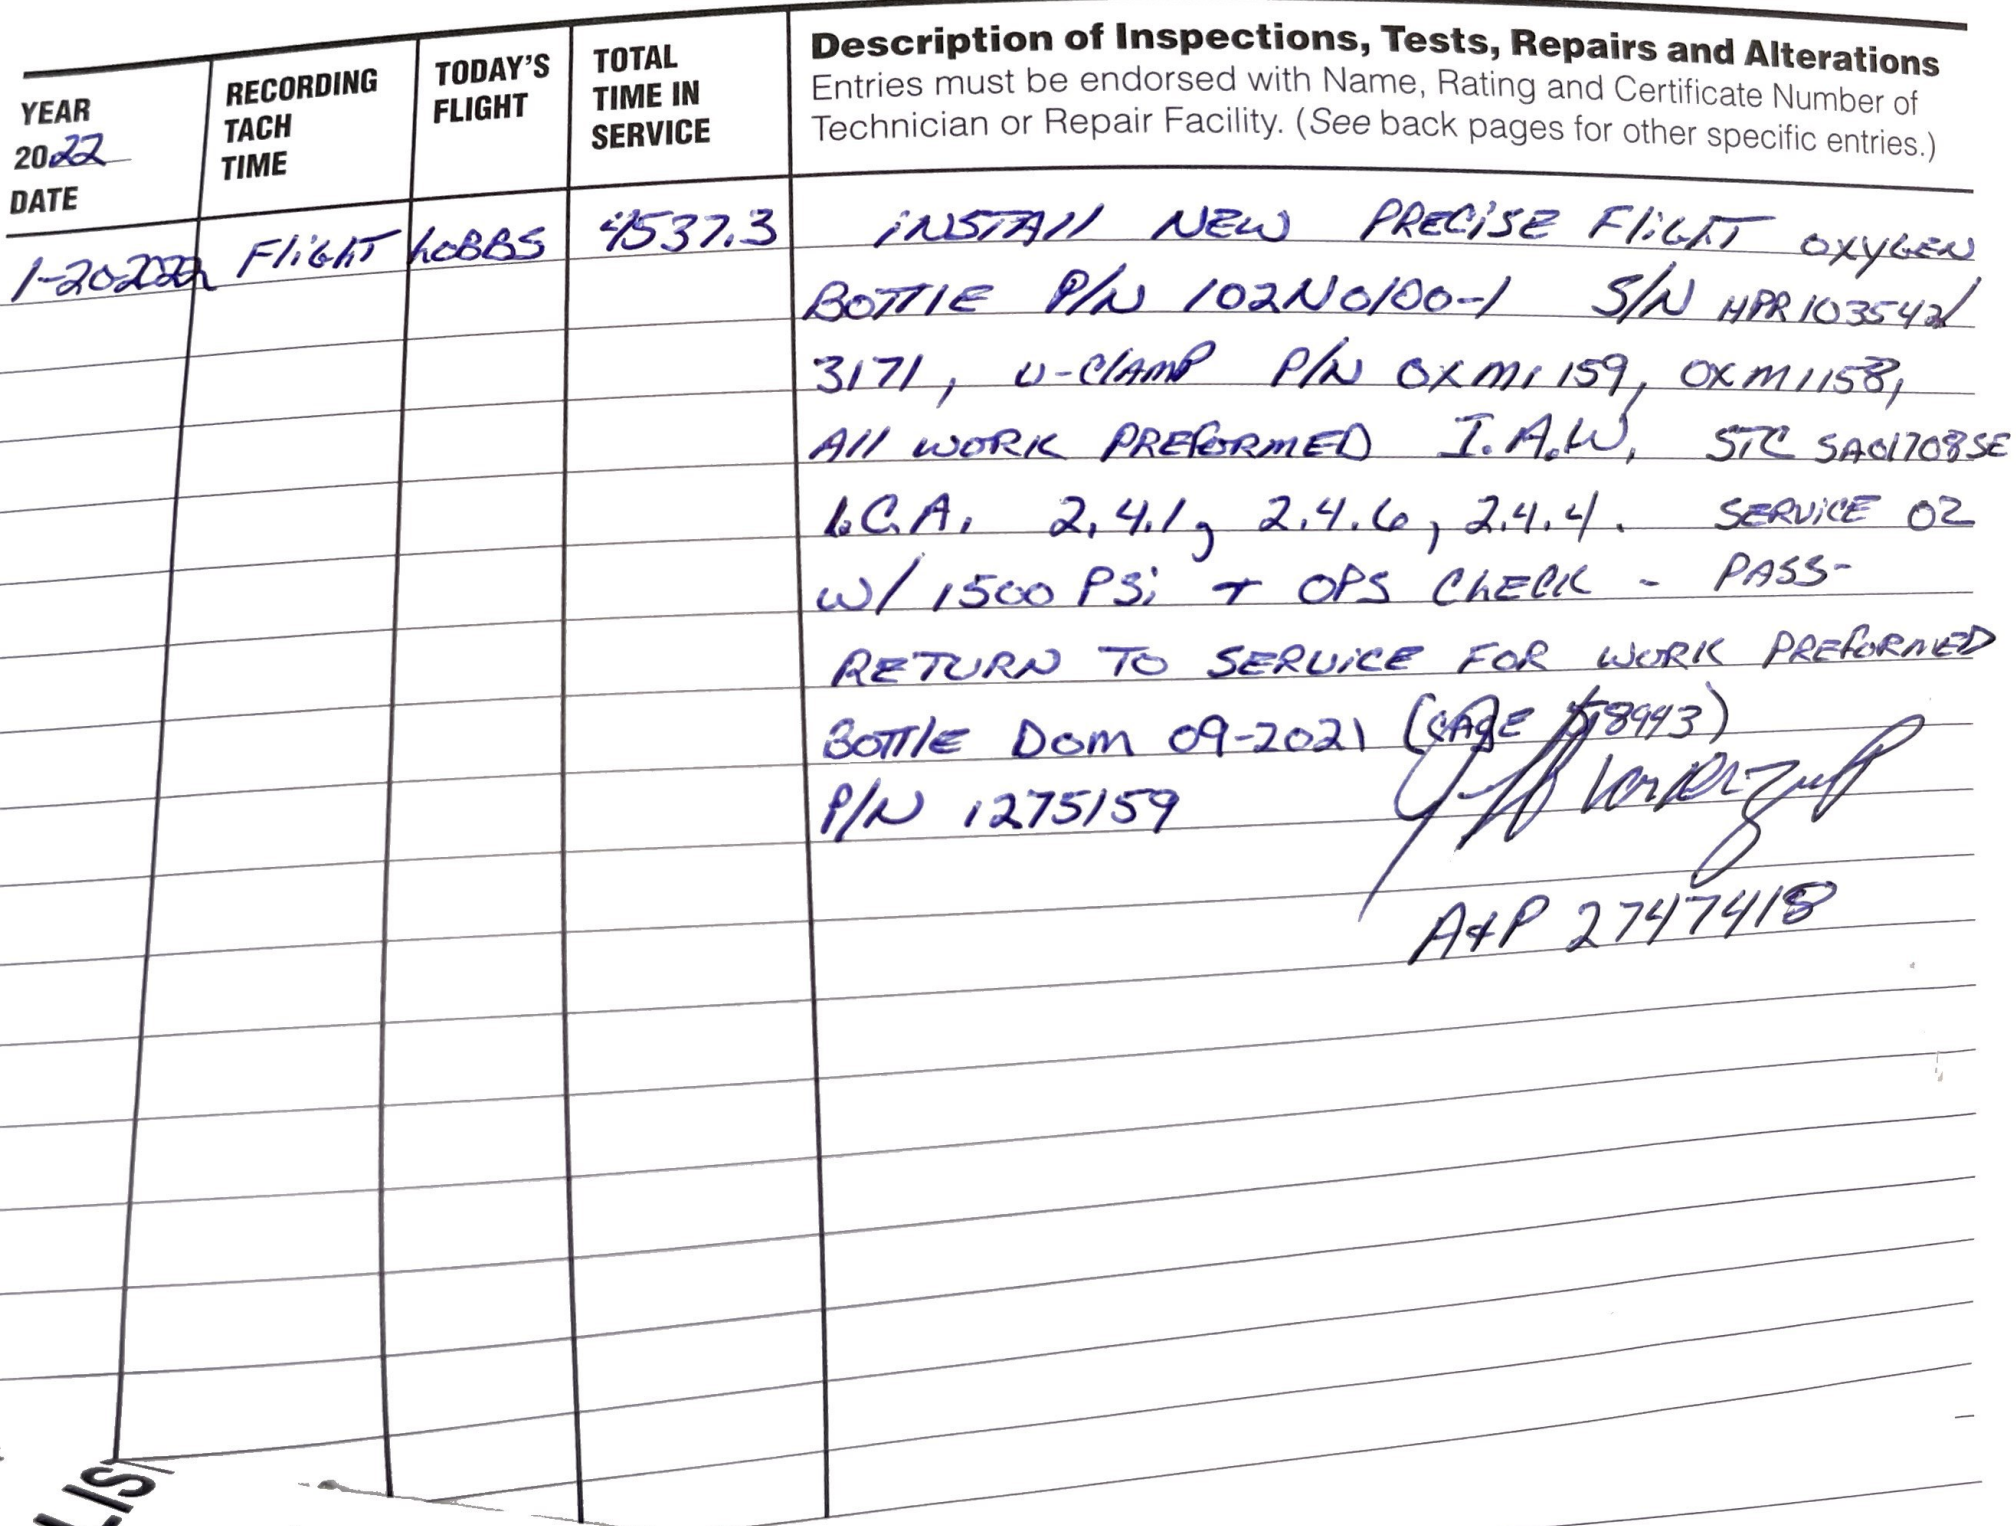 YEAR
2022
DATE
RECORDING
TACH
TIME
TODAY'S
FLIGHT
TOTAL
TIME IN
SERVICE
Description of Inspections, Tests, Repairs and Alterations
Entries must be endorsed with Name, Rating and Certificate Number of
Technician or Repair Facility. (See back pages for other specific entries.)
1-20-2022 FLIGHT HOBBS 4537.3 INSTALL NEW PRECISE FLIGHT OXYGEN
BOTTLE P/N 102N0100-1 S/N HPR103542/
3171, U-CLAMP P/N OXM1159, OXM1158,
All WORK PREFORMED I.A.W. STC SA01708SE
I.C.A. 2.4.1, 2.4.6, 2.4.4. SERVICE O2
W/ 1500 PSI + OPS CHECK - PASS-
RETURN TO SERVICE FOR WORK PREFORMED
BOTTLE DOM 09-2021 (CAGE 8943)
P/N 1275159
A&P 2747418
LIS